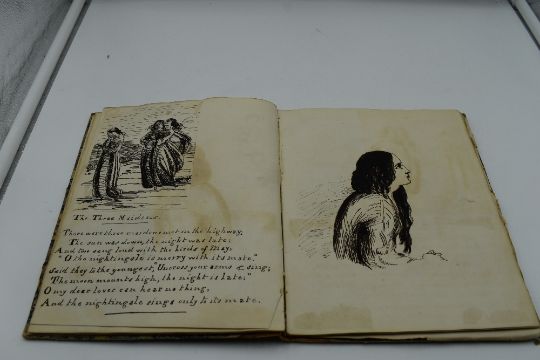 The Three Maidens.
There were three maidens met on the highway;
The sun was down, the night was late:
And two sang loud with the birds of May,
"O the nightingale is merry with its mate."
Said they to the youngest, "Uncross your arms & sing;
The moon mounts high, the night is late:"
O my dear lover can hear no thing,
And the nightingale sings only to its mate.